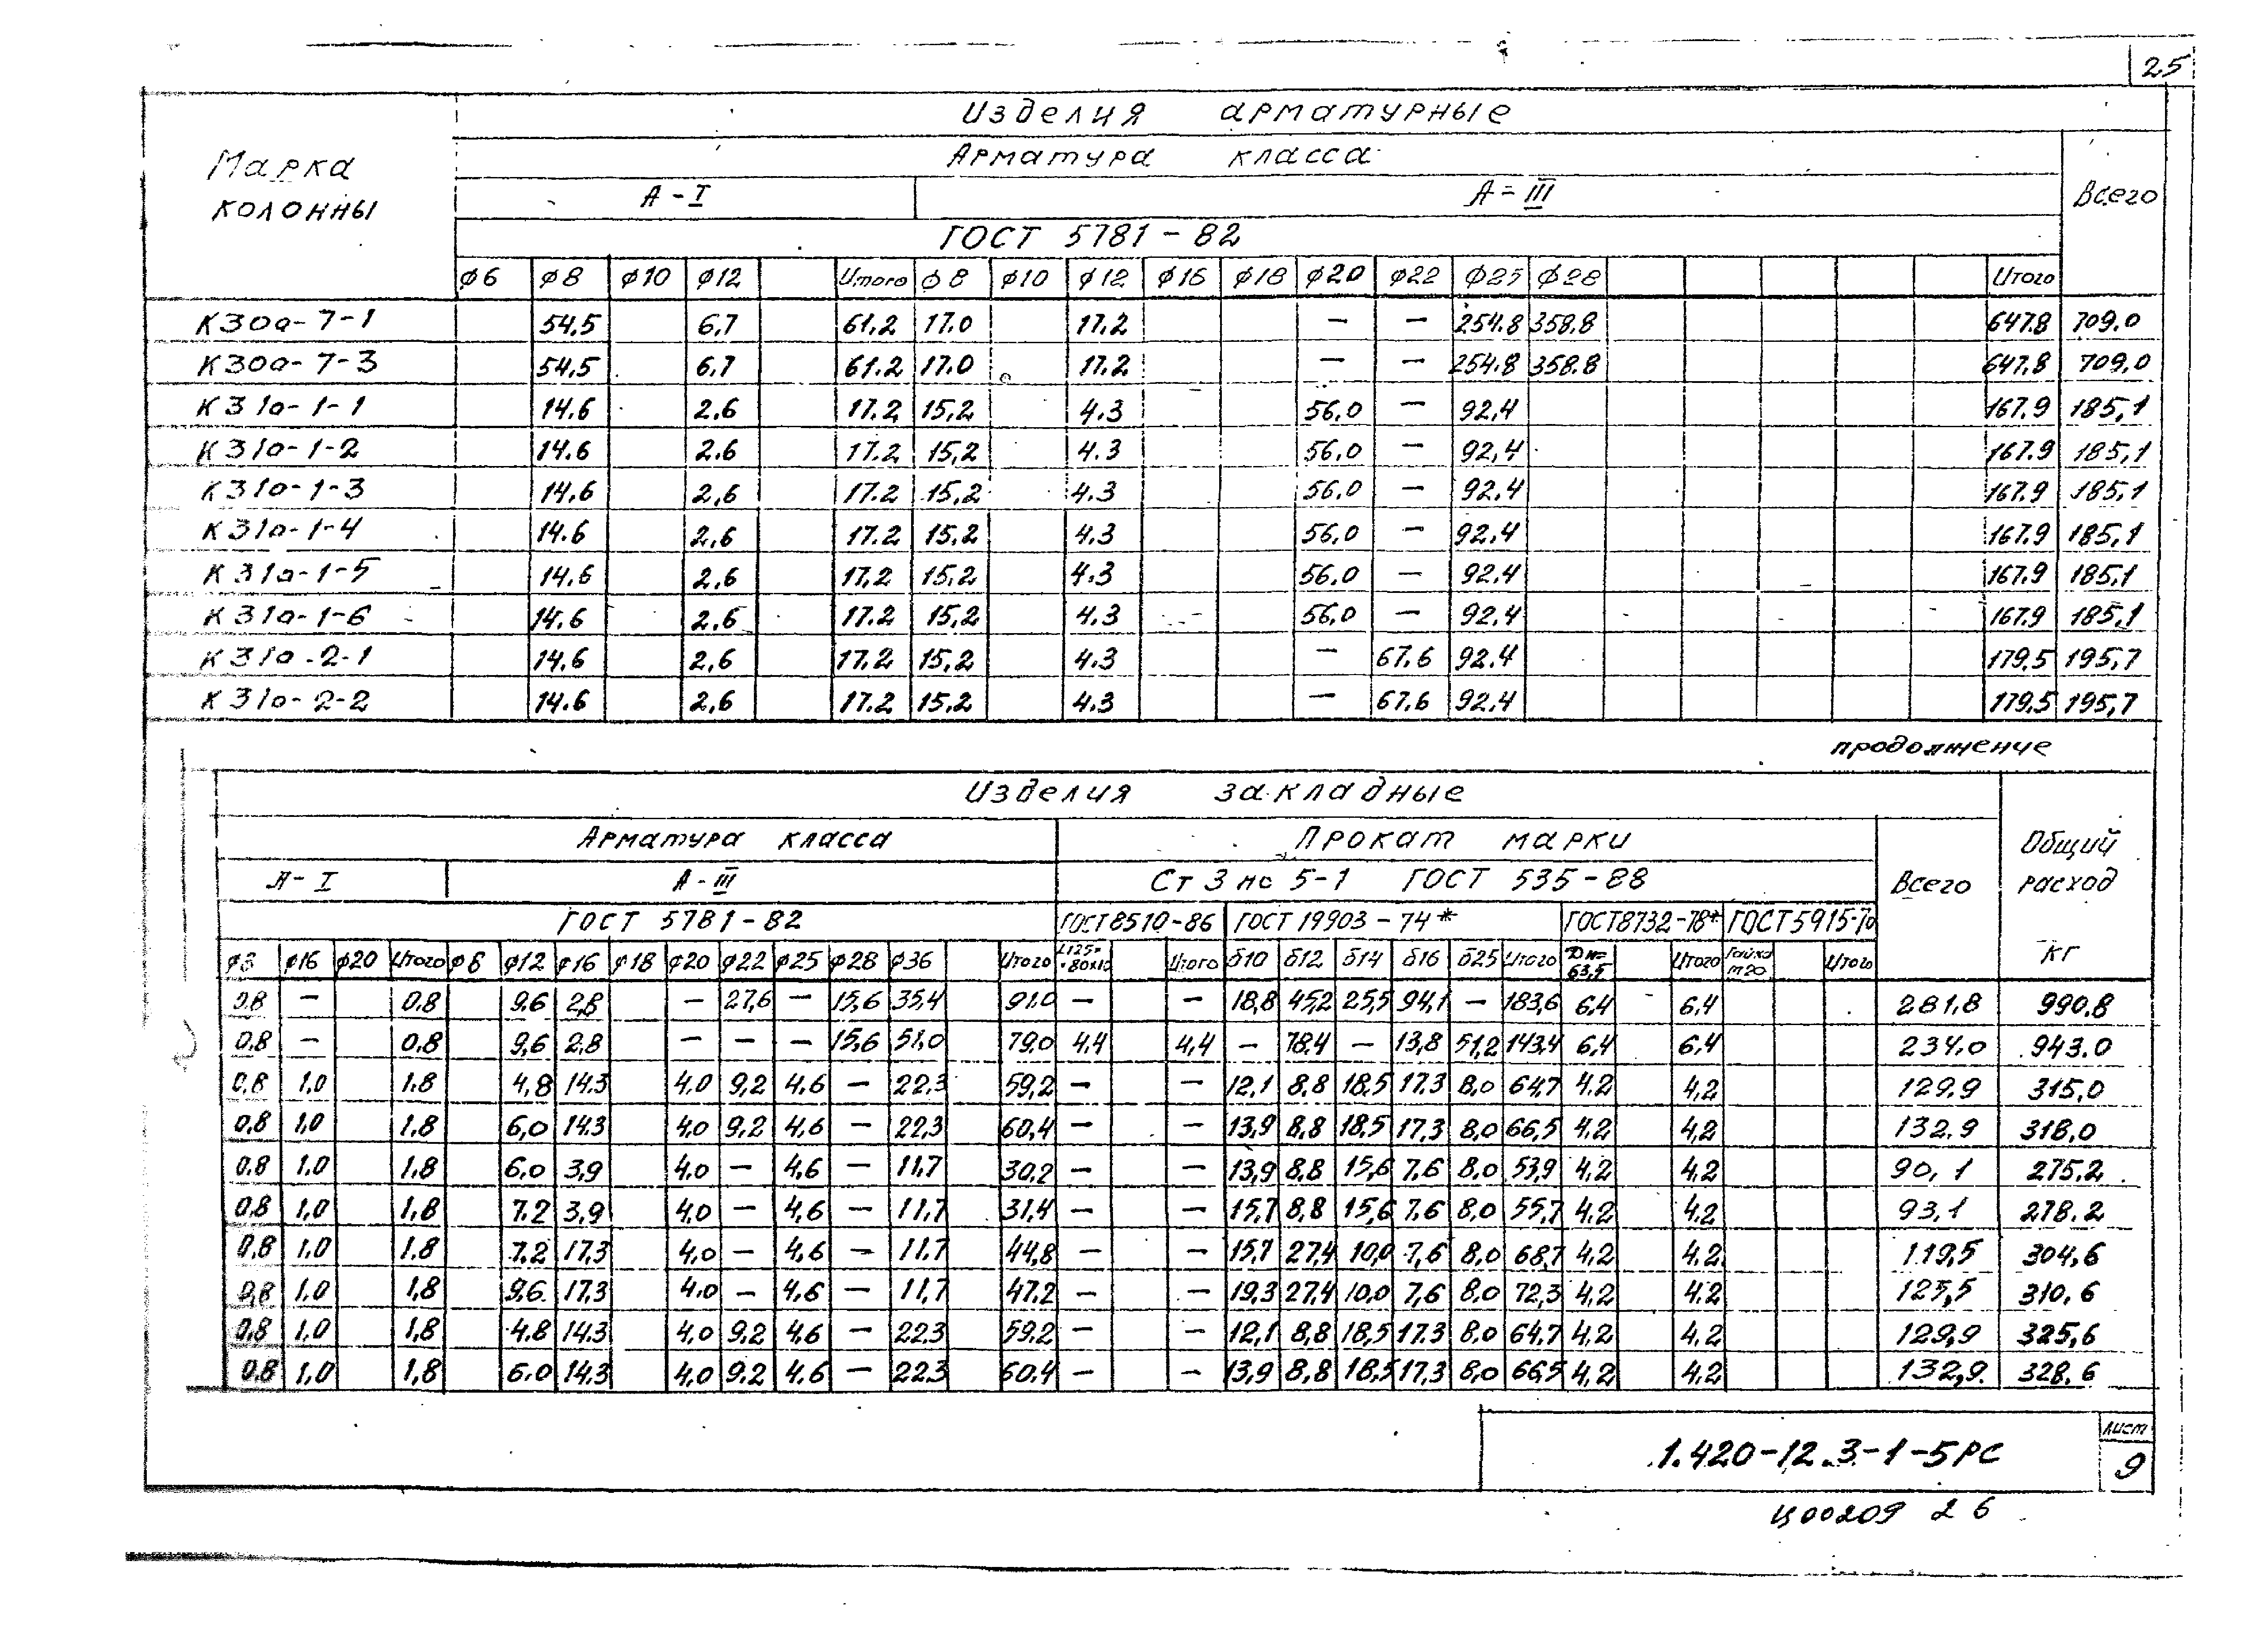 25
Изделия арматурные
Марка колонны
Арматура класса
Всего
А-I А-III
ГОСТ 5781-82
ф6 ф8 ф10 ф12 Итого ф8 ф10 ф12 ф16 ф18 ф20 ф22 ф25 ф28 Итого
К30а-7-1 54.5 6.7 61.2 17.0 17.2 — — 254.8 358.8 647.8 709.0
К30а-7-3 54.5 6.7 61.2 17.0 17.2 — — 254.8 358.8 647.8 709.0
К31а-1-1 14.6 2.6 17.2 15,2 4.3 56,0 — 92,4 167.9 185,1
К31а-1-2 14.6 2.6 17.2 15,2 4.3 56,0 — 92,4 167.9 185,1
К31а-1-3 14.6 2,6 17.2 15,2 4.3 56,0 — 92,4 167.9 185,1
К31а-1-4 14.6 2,6 17.2 15,2 4.3 56,0 — 92,4 167.9 185,1
К31а-1-5 14.6 2,6 17,2 15,2 4.3 56.0 — 92.4 167.9 185,1
К31а-1-6 14.6 2.6 17.2 15,2 4.3 56,0 — 92,4 167.9 185,1
К31а-2-1 14.6 2,6 17.2 15,2 4.3 — 67.6 92.4 179,5 195,7
К31а-2-2 14.6 2,6 17.2 15,2 4.3 — 67.6 92.4 179,5 195,7
продолжение
Изделия закладные
Арматура класса Прокат марки Всего Общий расход кг
А-I А-III Ст 3 пс 5-1 ГОСТ 535-88
ГОСТ 5781-82 ГОСТ 8510-86 ГОСТ 19903-74* ГОСТ 8732-78* ГОСТ 5915-70
ф8 ф16 ф20 Итого ф8 ф12 ф16 ф18 ф20 ф22 ф25 ф28 ф36 Итого L125××80×10 Итого δ10 δ12 δ14 δ16 δ25 Итого Дн=63,5 Итого Гайка м20 Итого
0.8 — 0.8 9.6 2,8 — 27,6 — 15,6 35,4 91.0 — — 18,8 45,2 25,5 94,1 — 183,6 6,4 6,4 281,8 990.8
0.8 — 0.8 9,6 2.8 — — — 15,6 51,0 79,0 4,4 4,4 — 78,4 — 13,8 51,2 143,4 6,4 6,4 234.0 943.0
0,8 1,0 1.8 4,8 14,3 4,0 9,2 4,6 — 22,3 59,2 — — 12,1 8,8 18,5 17,3 8,0 64,7 4.2 4,2 129.9 315,0
0.8 1,0 1,8 6,0 14.3 4,0 9,2 4,6 — 22,3 60,4 — — 13,9 8,8 18,5 17,3 8,0 66,5 4,2 4,2 132.9 318,0
0.8 1,0 1,8 6,0 3,9 4,0 — 4,6 — 11,7 30,2 — — 13,9 8,8 15,6 7,6 8,0 53,9 4,2 4,2 90,1 275.2
0.8 1,0 1,8 7.2 3,9 4,0 — 4,6 — 11,7 31,4 — — 15,7 8,8 15,6 7,6 8,0 55,7 4,2 4.2 93,1 278.2
0.8 1,0 1,8 7.2 17,3 4,0 — 4,6 — 11,7 44,8 — — 15,7 27,4 10,0 7,6 8,0 68,7 4,2 4,2 119,5 304,6
0,8 1,0 1,8 9,6 17,3 4,0 — 4,6 — 11,7 47.2 — — 19,3 27,4 10,0 7,6 8,0 72,3 4,2 4.2 125,5 310,6
0.8 1,0 1,8 4.8 14,3 4,0 9,2 4,6 — 22,3 59.2 — — 12,1 8,8 18,5 17.3 8,0 64,7 4,2 4,2 129,9 325,6
0.8 1,0 1,8 6,0 14,3 4,0 9.2 4,6 — 22,3 60.4 — — 13,9 8,8 18,5 17,3 8,0 66,5 4,2 4.2 132,9. 328.6
1.420-12.3-1-5РС
Лист
9
Ц00209 26